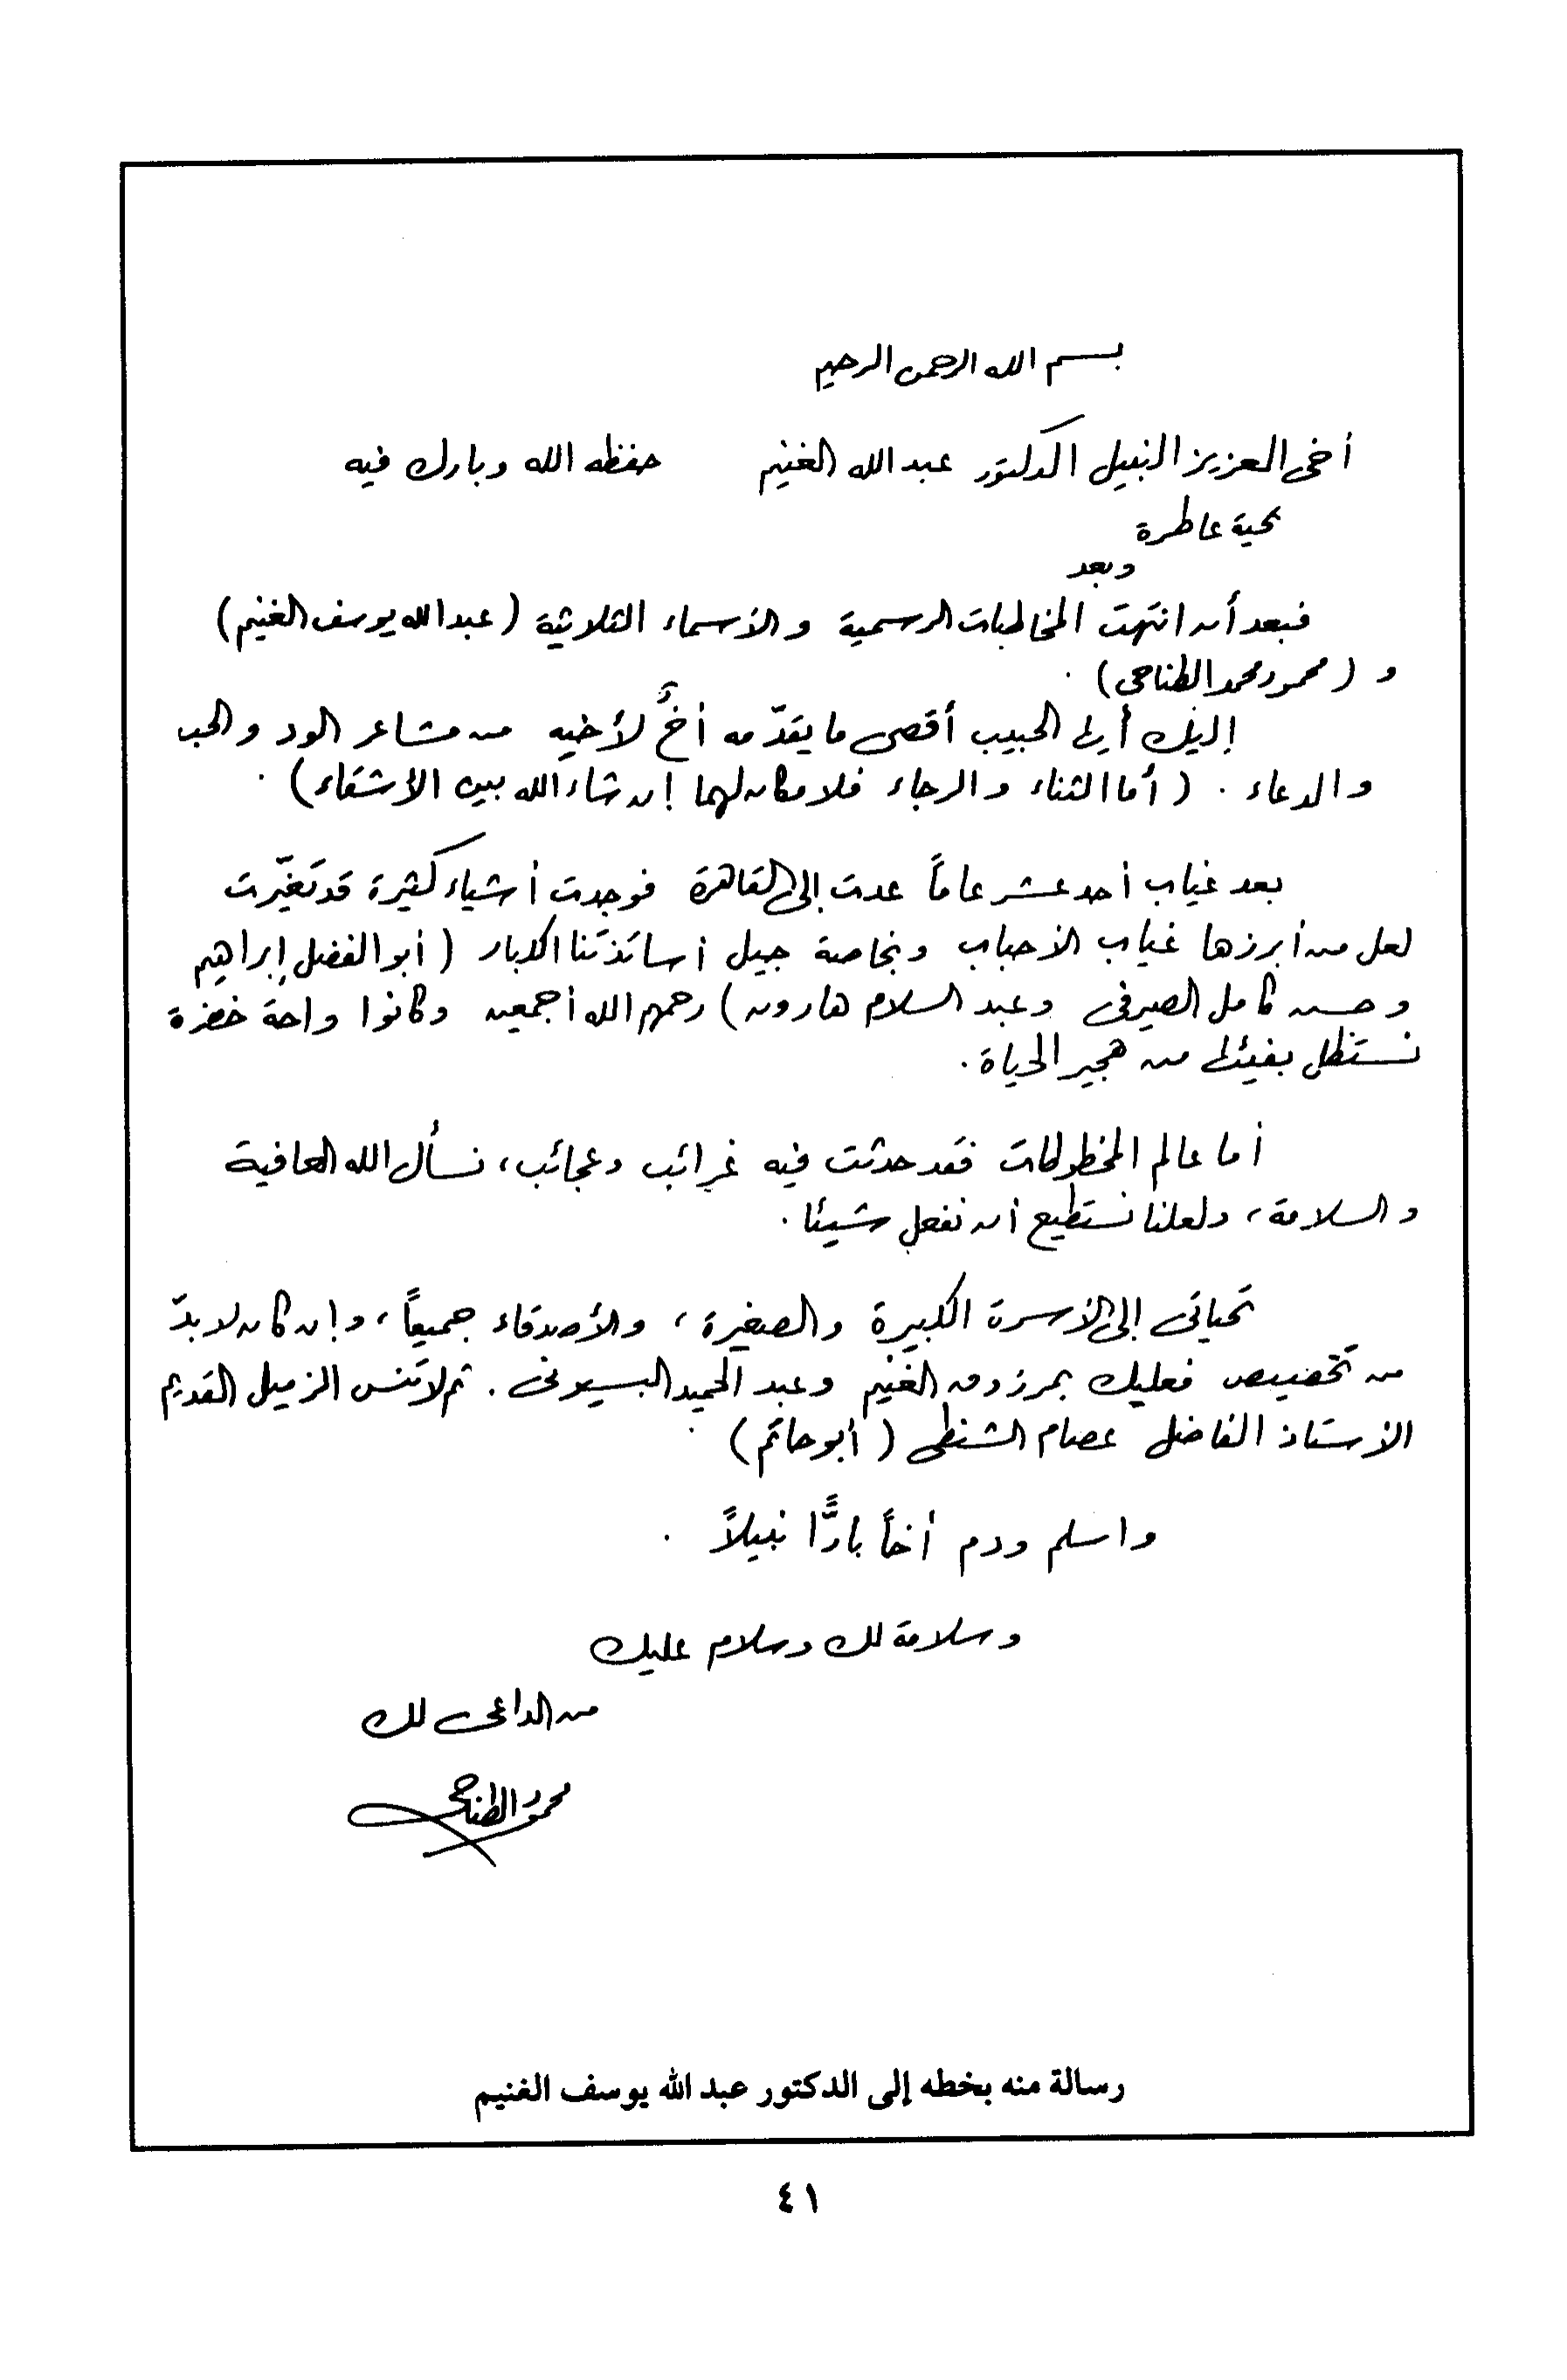 بسم الله الرحمن الرحيم
أخى العزيز النبيل الدكتور عبد الله الغنيم حفظه الله وبارك فيه
تحية عاطرة
وبعد
فبعد أن انتهت المخاطبات الرسمية والأسماء الثلاثية (عبد الله يوسف الغنيم)
و (محمود محمد الطناحى) .
إليك أيها الحبيب أقصى ما يقدّمه أخٌ لأخيه من مشاعر الود والحب
والدعاء . (أما الثناء والرجاء فلا مكان لهما إن شاء الله بين الأشقاء) .
بعد غياب أحد عشر عاماً عدت إلى القاهرة فوجدت أشياء كثيرة قد تغيّرت
لعل من أبرزها غياب الأحباب وبخاصة جيل أساتذتنا الكبار (أبو الفضل إبراهيم
وحسن كامل الصيرفى وعبد السلام هارون) رحمهم الله أجمعين وكانوا واحة خضرة
نستظل بفيئها من هجير الحياة .
أما عالم المخطوطات فقد حدثت فيه غرائب وعجائب، نسأل الله العافية
والسلامة، ولعلنا نستطيع أن نفعل شيئا .
تحياتى إلى الأسرة الكبيرة والصغيرة، والأصدقاء جميعاً، وإن كان لا بدّ
من تخصيص فعليك بمرزوق الغنيم وعبد الحميد البسيونى . ثم لا تنس الزميل القديم
الأستاذ الفاضل عصام الشنطى (أبو حاتم) .
واسلم ودم أخاً بارًّا نبيلاً .
وسلامة لك وسلام عليك
من الداعى لك
محمود الطناحى
رسالة منه بخطه إلى الدكتور عبد الله يوسف الغنيم
٤١